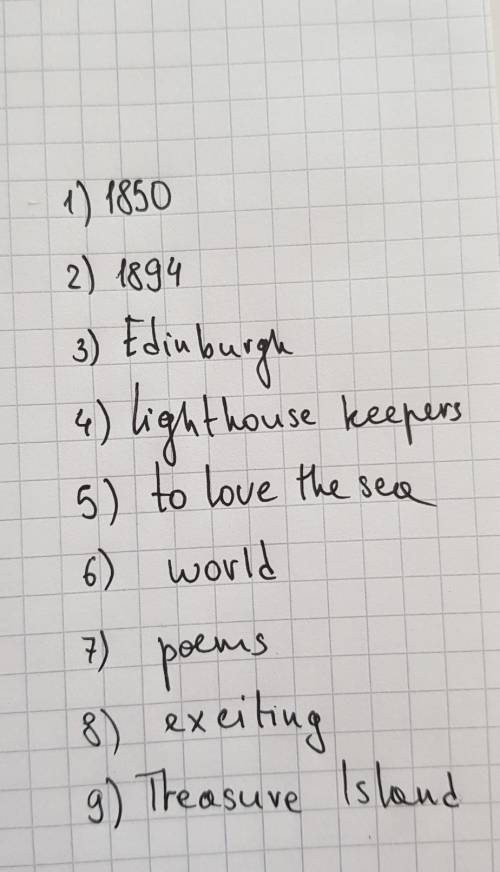 1) 1850
2) 1894
3) Edinburgh
4) lighthouse keepers
5) to love the sea
6) world
7) poems
8) exciting
9) Treasure Island